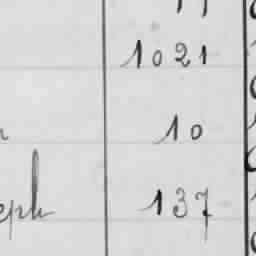 1021
10
eph 137